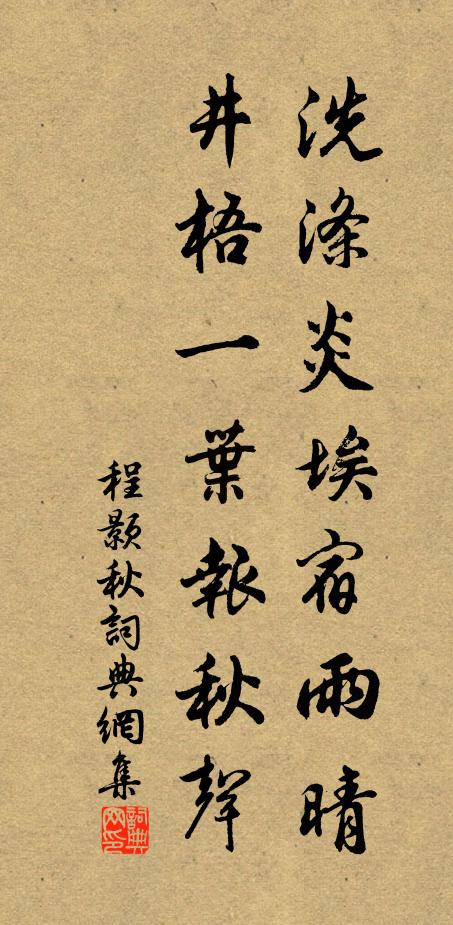 洗滌炎埃宿雨晴
井梧一葉報秋聲
程顥秋詞典網集
詞典網印